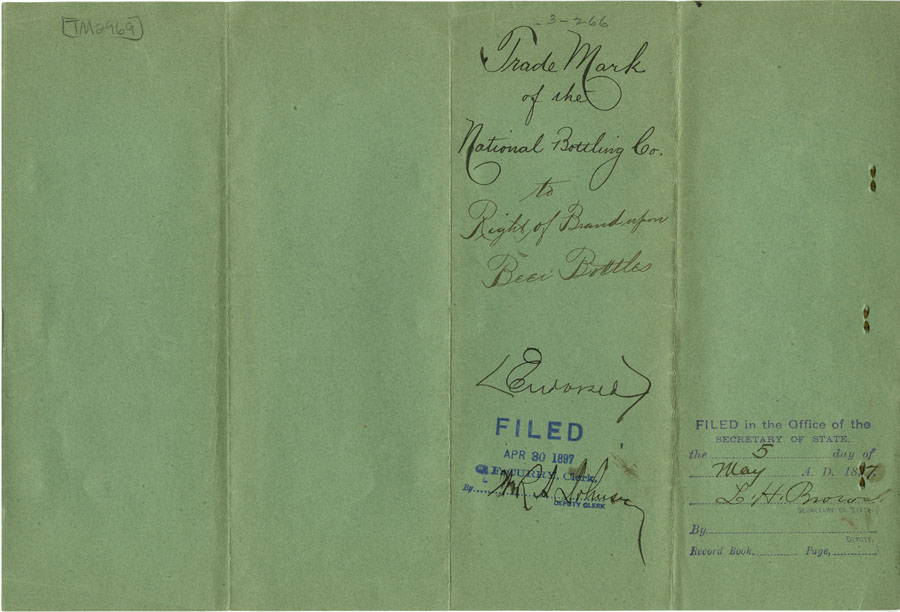 TM2969
3-266
Trade Mark
of the
National Bottling Co.
to
Right of Brand upon
Beer Bottles
(Endorsed)
FILED
APR 30 1897
CURRY, Clerk,
By
DEPUTY CLERK
FILED in the Office of the
SECRETARY OF STATE.
the 5 day of
May A. D. 1897.
L. H. Brown
SECRETARY OF STATE.
By
DEPUTY.
Record Book, Page,